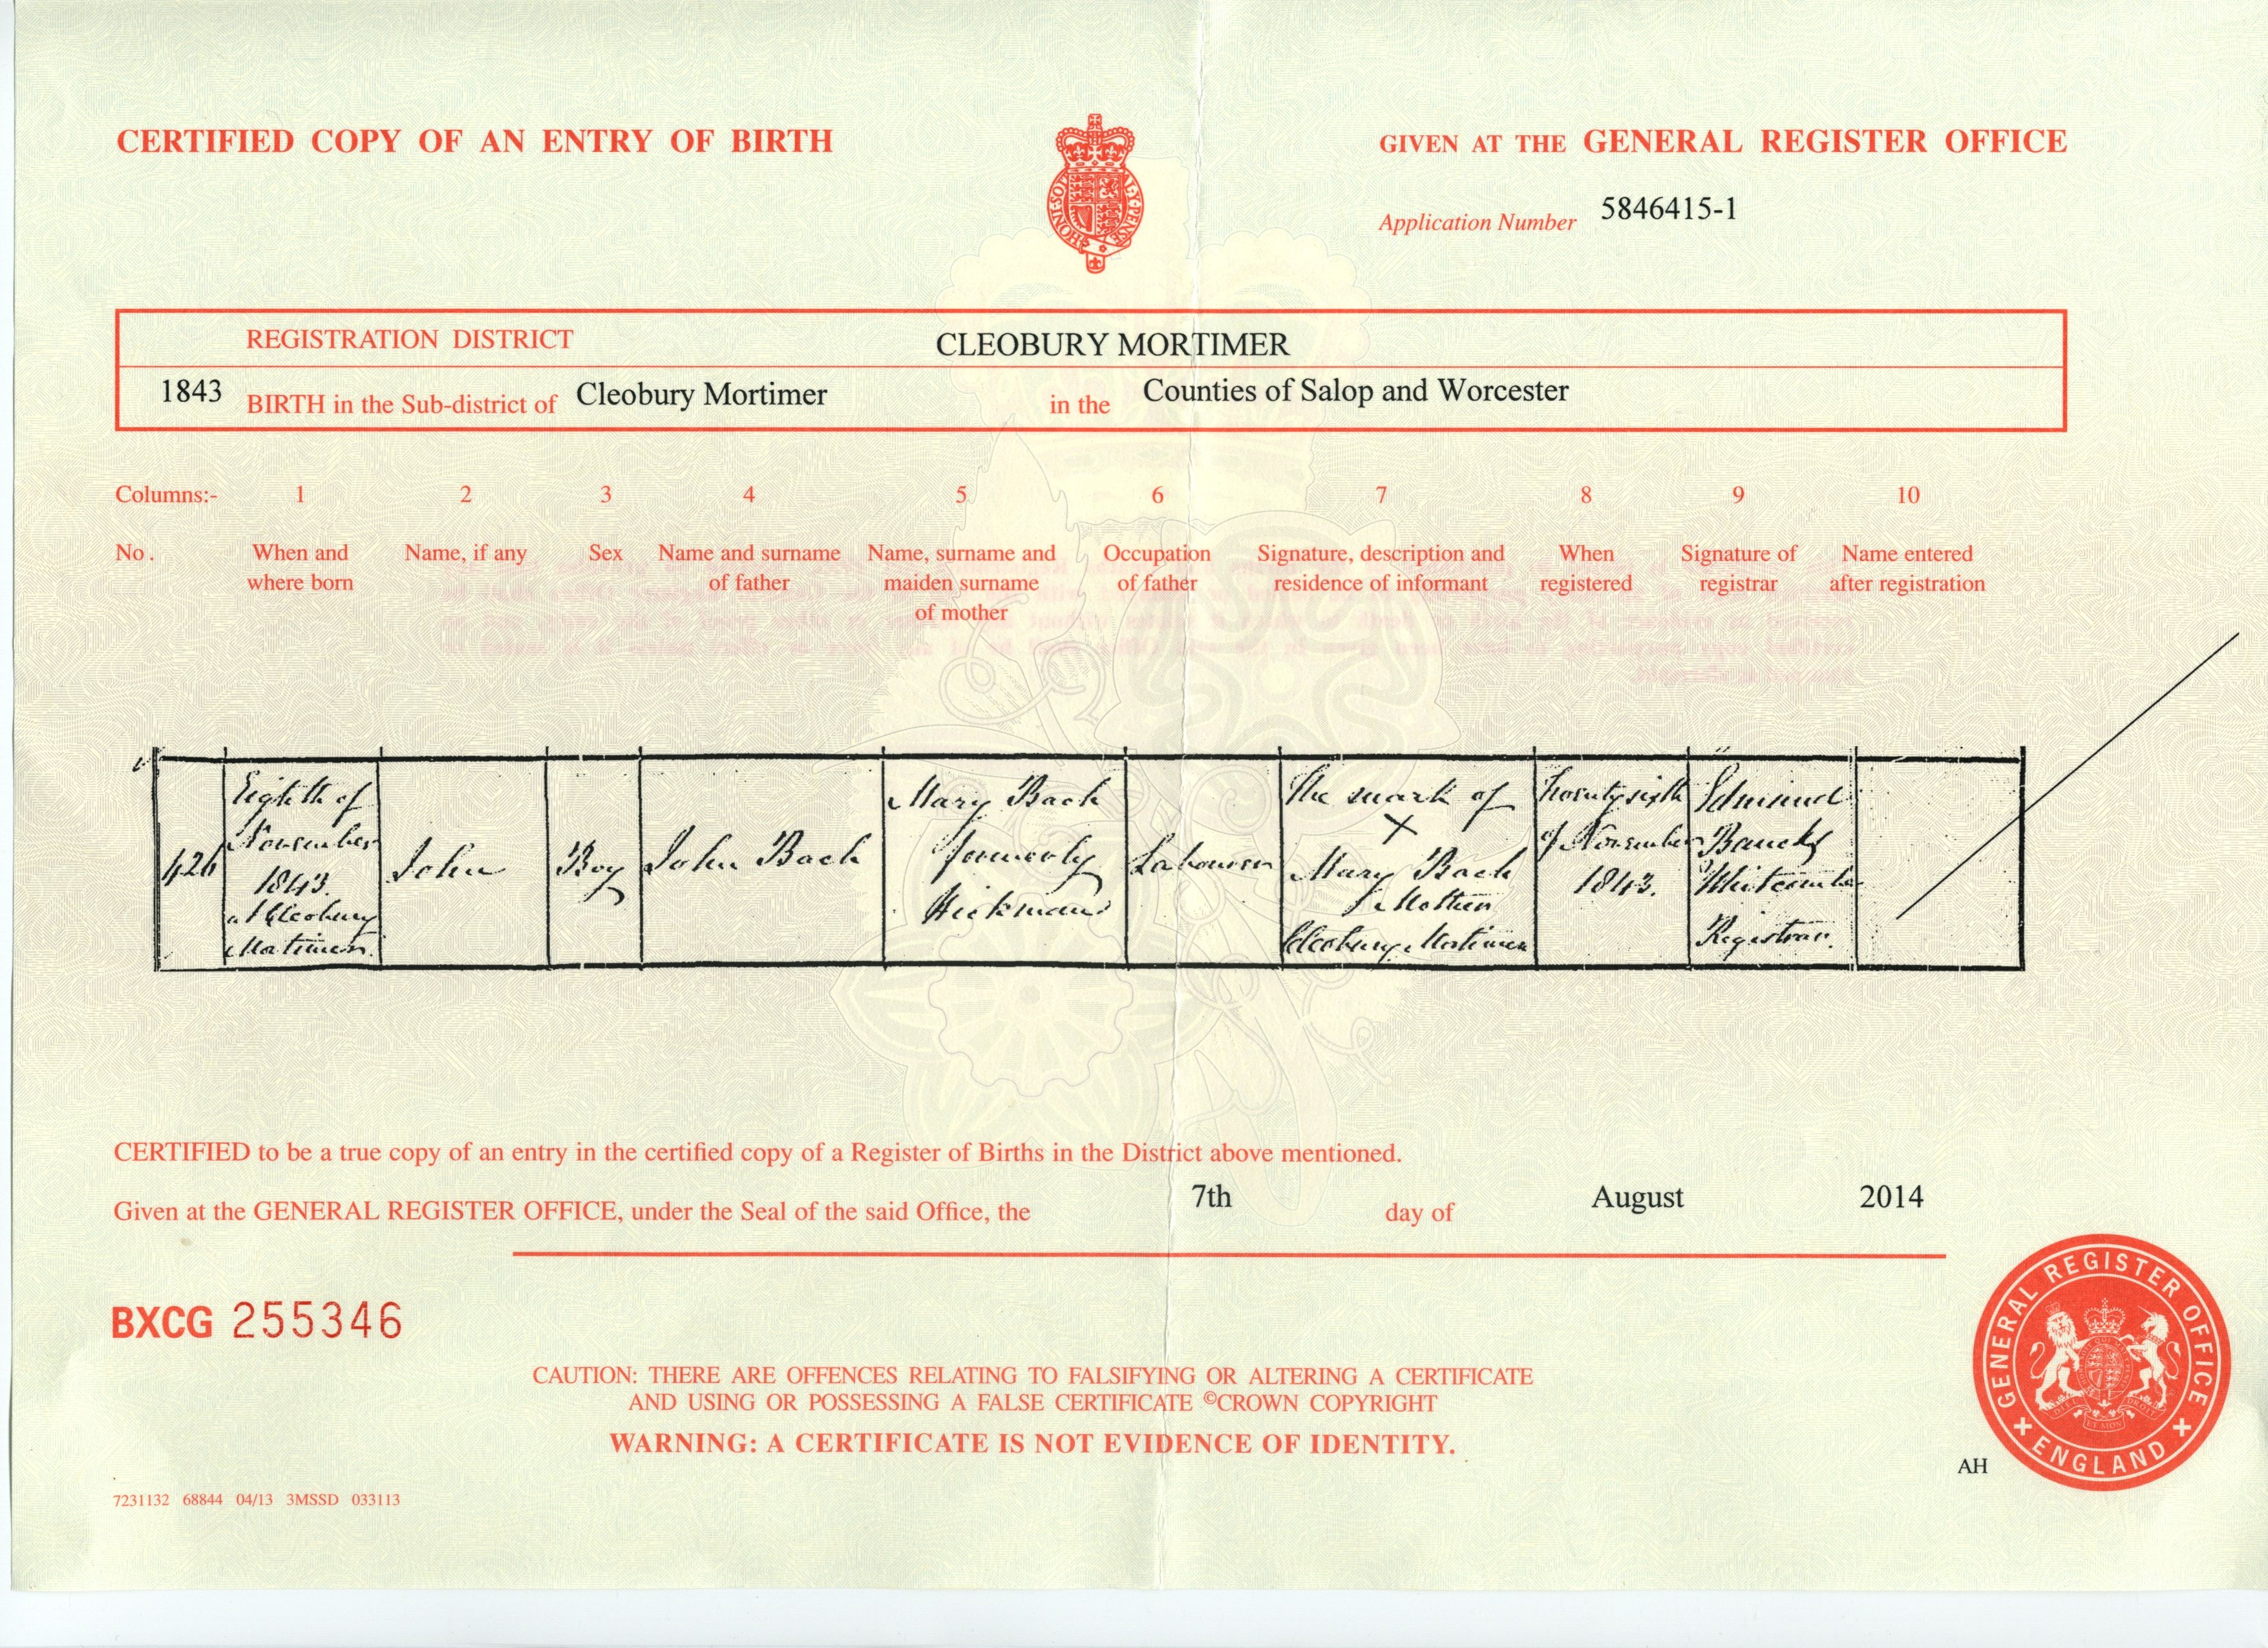 CERTIFIED COPY OF AN ENTRY OF BIRTH
GIVEN AT THE GENERAL REGISTER OFFICE
HONI·SOIT Y·PENSE
Application Number 5846415-1
REGISTRATION DISTRICT CLEOBURY MORTIMER
1843 BIRTH in the Sub-district of Cleobury Mortimer in the Counties of Salop and Worcester
Columns:- 1 2 3 4 5 6 7 8 9 10
No. When and where born
Name, if any
Sex
Name and surname of father
Name, surname and maiden surname of mother
Occupation of father
Signature, description and residence of informant
When registered
Signature of registrar
Name entered after registration
426
Eighth of
November
1843.
at Cleobury
Mortimer.
John
Boy
John Bach
Mary Bach
formerly
Hickman
Labourer
The mark of
X
Mary Bach
Mother
Cleobury Mortimer
Twenty sixth
of November
1843.
Edmund
Bancks
Whitcombe
Registrar.
CERTIFIED to be a true copy of an entry in the certified copy of a Register of Births in the District above mentioned.
Given at the GENERAL REGISTER OFFICE, under the Seal of the said Office, the 7th day of August 2014
BXCG 255346
CAUTION: THERE ARE OFFENCES RELATING TO FALSIFYING OR ALTERING A CERTIFICATE
AND USING OR POSSESSING A FALSE CERTIFICATE ©CROWN COPYRIGHT
WARNING: A CERTIFICATE IS NOT EVIDENCE OF IDENTITY.
GENERAL REGISTER OFFICE
ENGLAND
AH
7231132 68844 04/13 3MSSD 033113